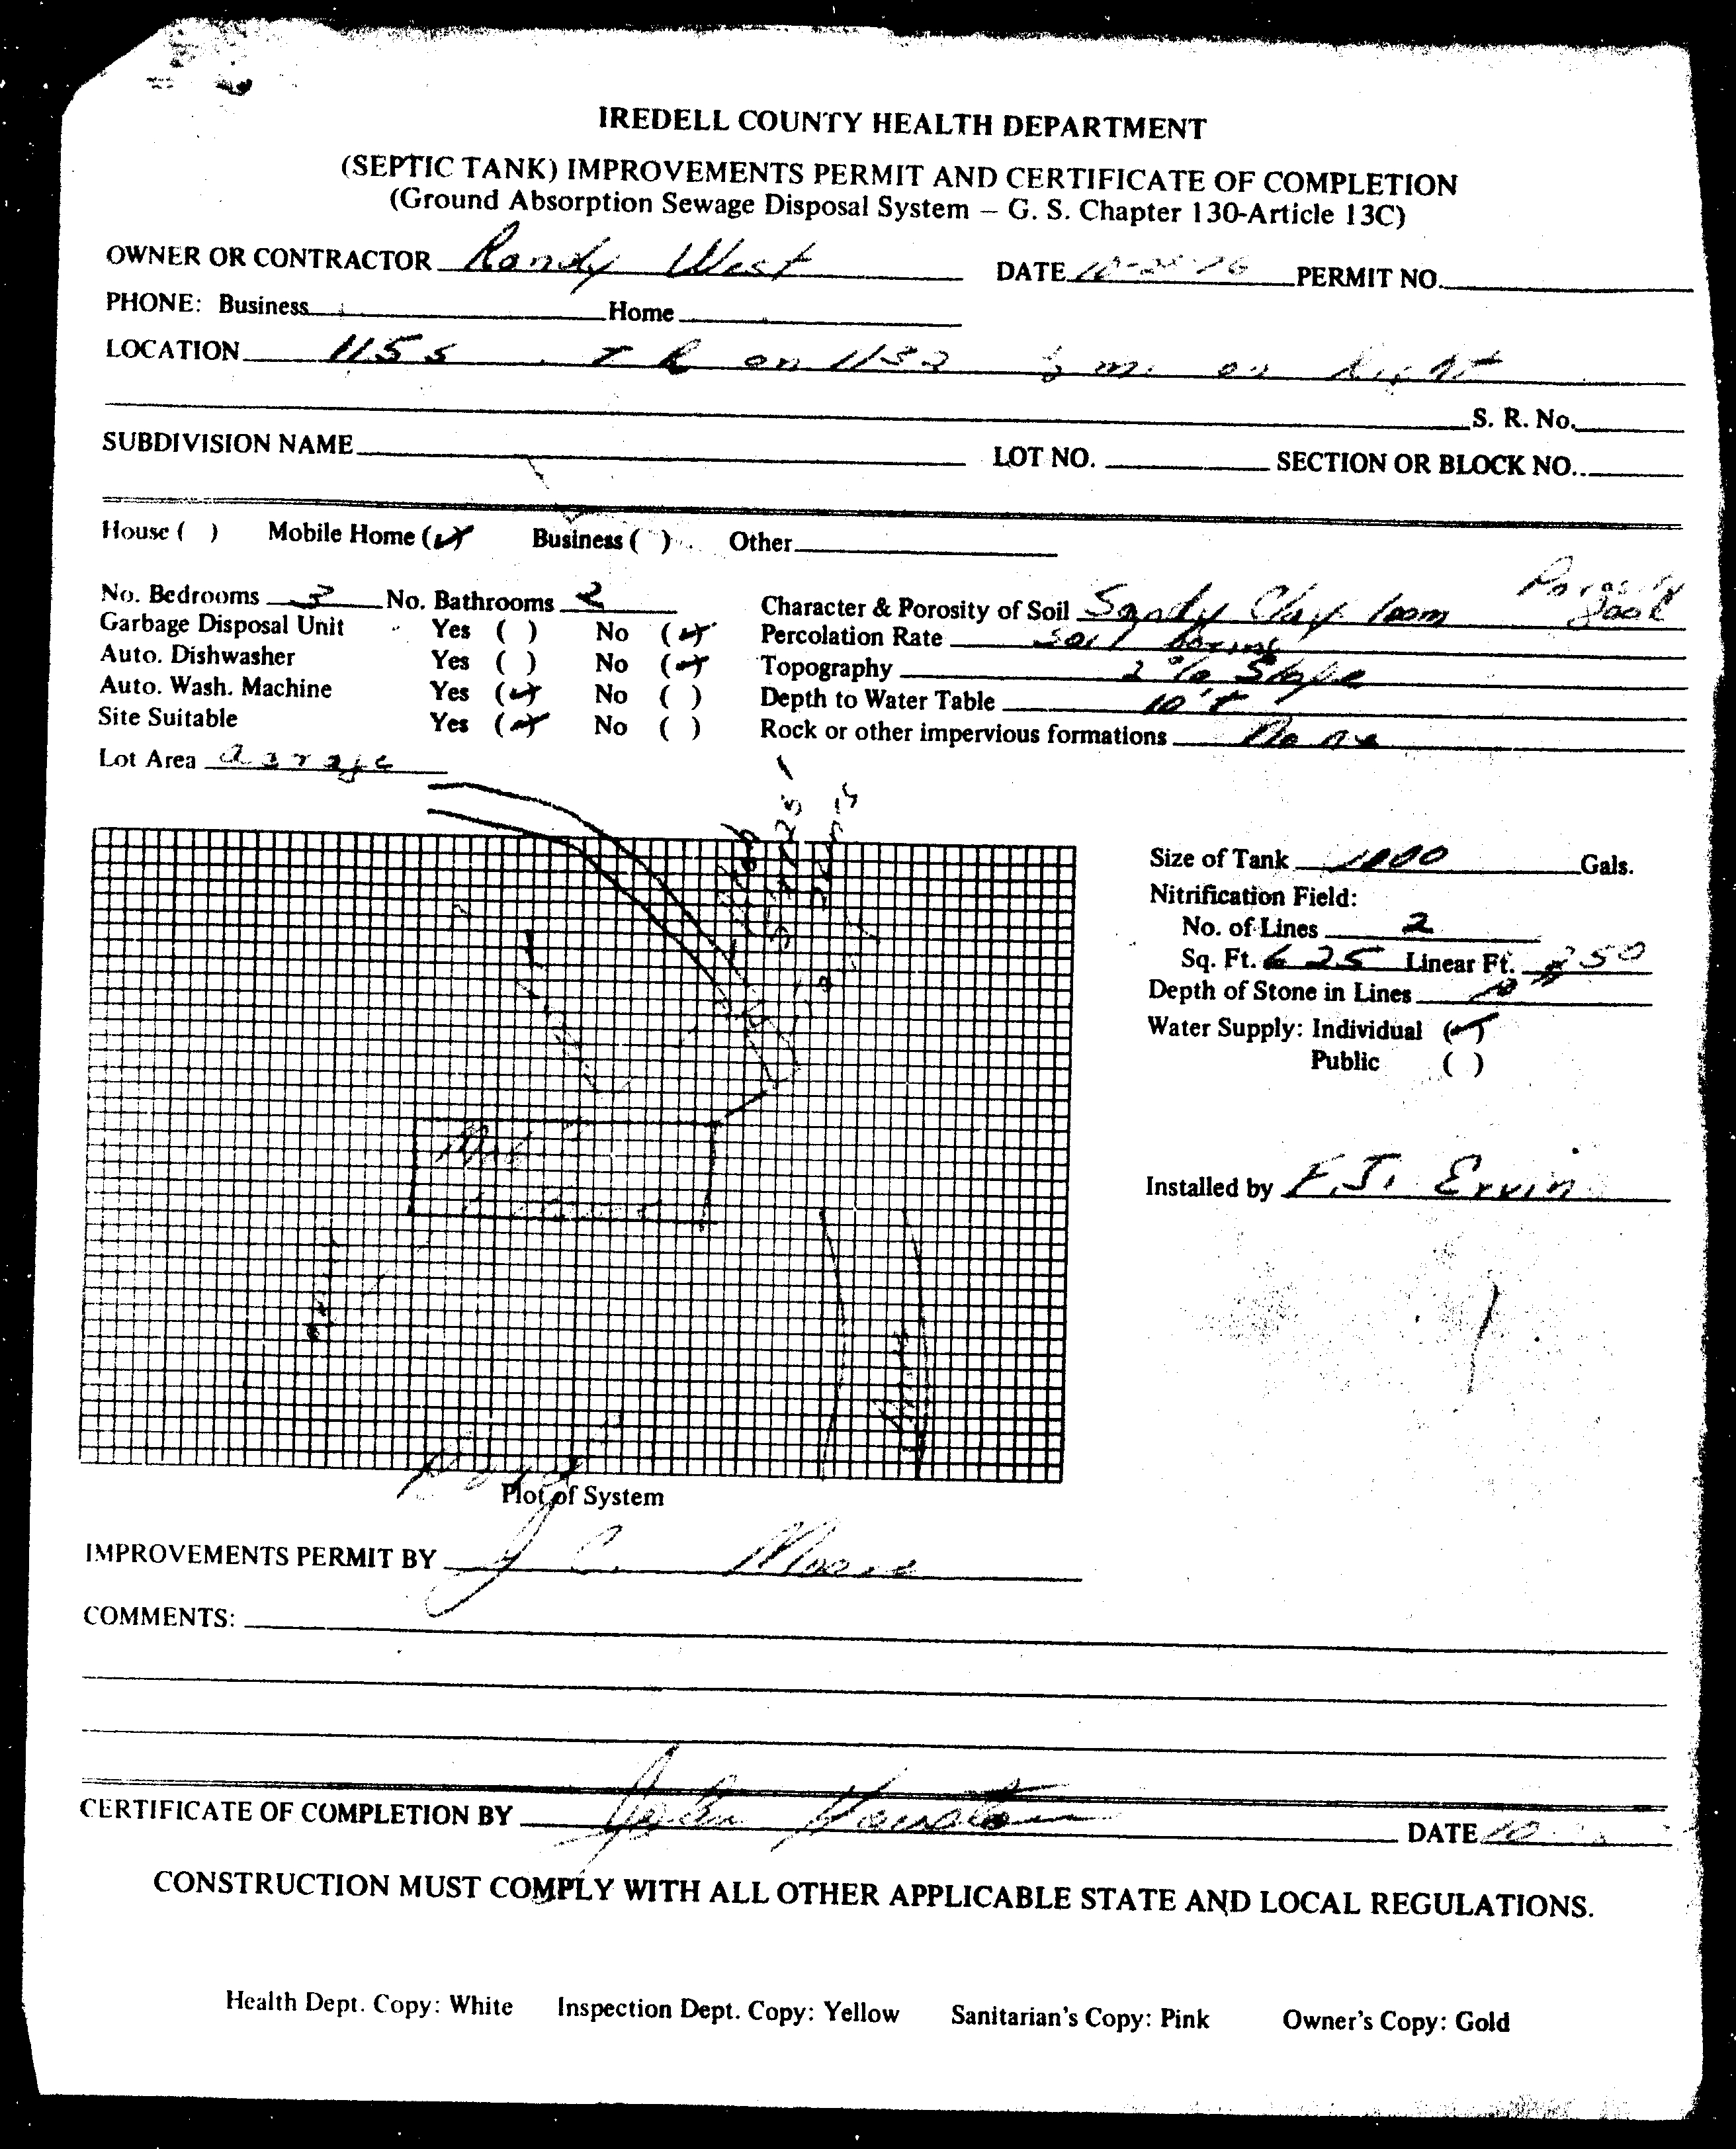 IREDELL COUNTY HEALTH DEPARTMENT
(SEPTIC TANK) IMPROVEMENTS PERMIT AND CERTIFICATE OF COMPLETION
(Ground Absorption Sewage Disposal System – G. S. Chapter 130-Article 13C)
OWNER OR CONTRACTOR Randy West DATE PERMIT NO.
PHONE: Business Home
LOCATION 115 S on 1132 ½ mi on Right
S. R. No.
SUBDIVISION NAME LOT NO. SECTION OR BLOCK NO.
House ( ) Mobile Home (✓) Business ( ) Other
No. Bedrooms 3 No. Bathrooms 2 Character & Porosity of Soil Sandy Clay loam Porosity Good
Garbage Disposal Unit Yes ( ) No (✓) Percolation Rate Soil boring
Auto. Dishwasher Yes ( ) No (✓) Topography 2% Slope
Auto. Wash. Machine Yes (✓) No ( ) Depth to Water Table 10'+
Site Suitable Yes (✓) No ( ) Rock or other impervious formations None
Lot Area
Size of Tank 1000 Gals.
Nitrification Field:
No. of Lines 2
Sq. Ft. 625 Linear Ft. 250
Depth of Stone in Lines
Water Supply: Individual (✓)
Public ( )
Installed by F.J. Ervin
Plot of System
IMPROVEMENTS PERMIT BY J C. Moore
COMMENTS:
CERTIFICATE OF COMPLETION BY DATE 10
CONSTRUCTION MUST COMPLY WITH ALL OTHER APPLICABLE STATE AND LOCAL REGULATIONS.
Health Dept. Copy: White Inspection Dept. Copy: Yellow Sanitarian's Copy: Pink Owner's Copy: Gold